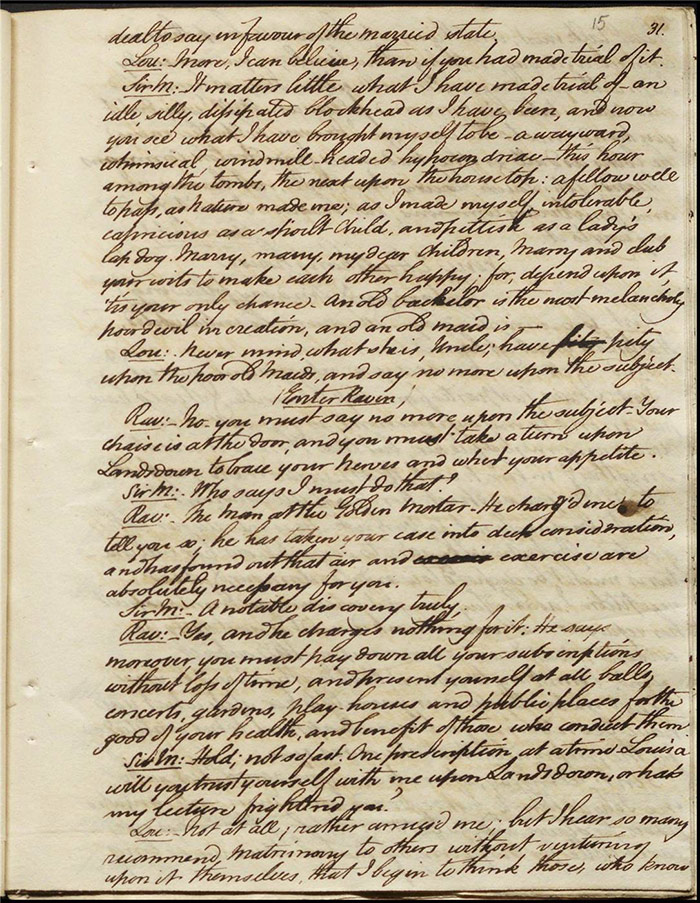 15
31.
deal to say in favour of the married state.
Lou:- More, I can believe, than if you had made trial of it.
Sir M:- It matters little what I have made trial of - an
idle, silly, dissipated blockhead as I have been, and now
you see what I have brought myself to be - a wayward,
whimsical windmile-headed hypocondriac - this hour
among the tombs, the next upon the house top: a fellow well
to pass, as Nature made me; as I made myself, intolerable,
capricious as a spoilt Child, and pettish as a lady's
lap dog. Marry, marry, my dear Children, Marry and club
your wits to make each other happy; for, depend upon it,
'tis your only chance - An old bachelor is the most melancholy
poor devil in creation, and an old maid is -
Lou:- Never mind what she is, Uncle; have pity
upon the poor old Maids, and say no more upon the subject.
(Enter Raven)
Rav:- No - you must say no more upon the subject - Your
chaise is at the door, and you must take a turn upon
Landsdown to brace your nerves and whet your appetite.
Sir M:- Who says I must do that?
Rav:- The man at the Golden Mortar - He charg'd me to
tell you so; he has taken your case into deep consideration,
and has found out that air and exercise are
absolutely necessary for you.
Sir M:- A notable discovery truly.
Rav:- Yes, and he charges nothing for it: He says
moreover, you must pay down all your subscriptions
without loss of time, and present yourself at all balls,
concerts, gardens, play-houses and public places for the
good of your health, and benefit of those who conduct them
Sir M:- Hold; not so fast. One prescription at a time Louisa
will you trust yourself with me upon Landsdown, or has
my lecture frightened you?
Lou:- Not at all; rather amus'd me; but I hear so many
recommend Matrimony to others without venturing
upon it themselves, that I begin to think those, who know